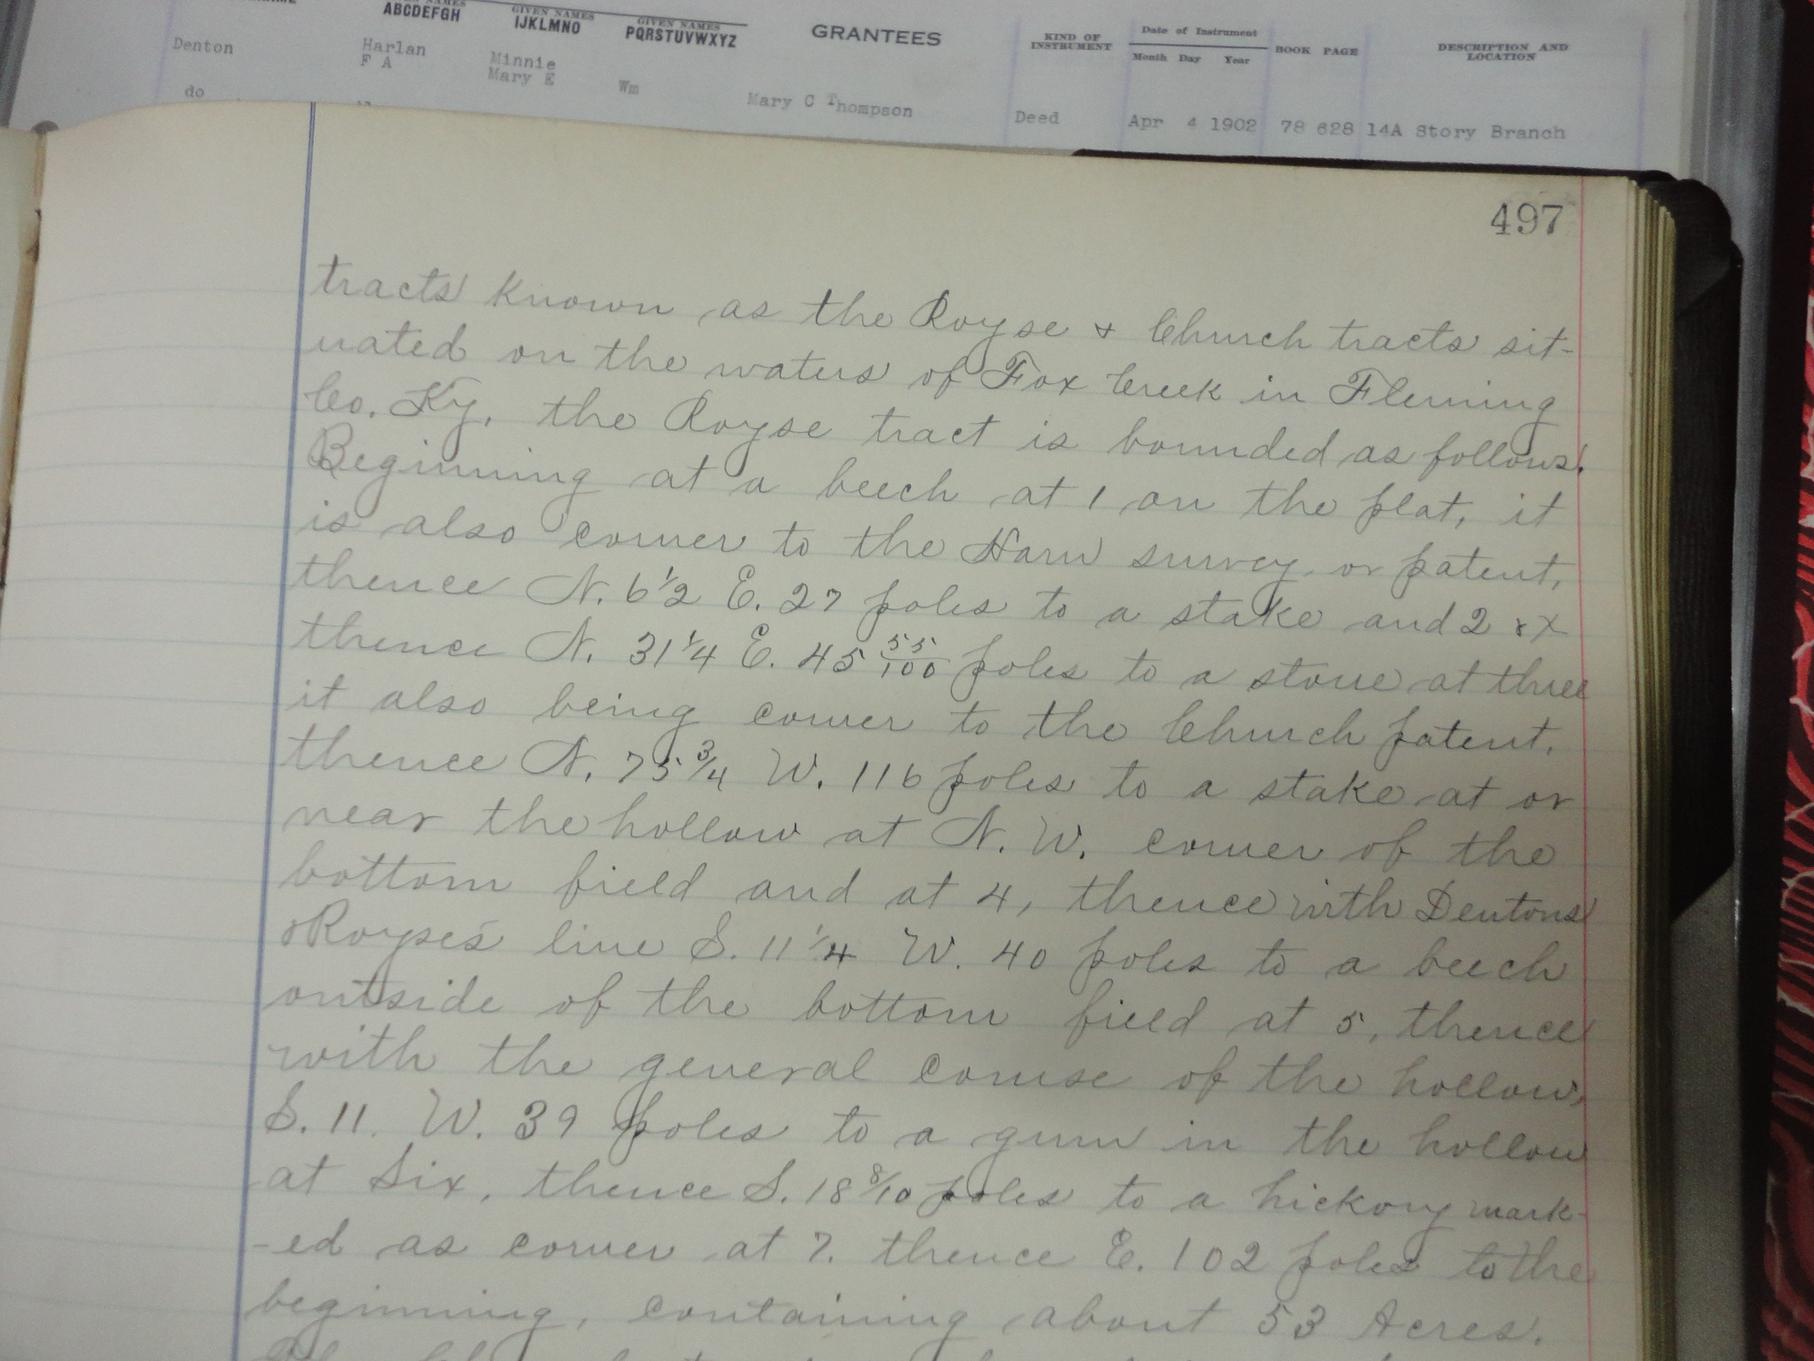 ABCDEFGH
GIVEN NAMES
IJKLMNO
GIVEN NAMES
PQRSTUVWXYZ
GRANTEES
KIND OF
INSTRUMENT
Date of Instrument
Month Day Year
BOOK PAGE
DESCRIPTION AND
LOCATION
Denton Harlan Minnie
F A Mary E Wm
do Mary C Thompson Deed Apr 4 1902 78 628 14A Story Branch
497
tracts known as the Royse & Church tracts sit-
uated on the waters of Fox Creek in Fleming
Co. Ky, the Royse tract is bounded as follows:
Beginning at a beech at 1 on the plat, it
is also corner to the survey or patent,
thence N. 6 1/2 E. 27 poles to a stake and 2
thence N. 31 1/4 E. 45 55/100 poles to a stone at three
it also being corner to the Church patent.
thence N. 75 3/4 W. 116 poles to a stake at or
near the hollow at N. W. corner of the
bottom field and at 4, thence with Dentons
& Royse's line S. 11 1/4 W. 40 poles to a beech
outside of the bottom field at 5, thence
with the general course of the hollow,
S. 11. W. 39 poles to a gum in the hollow
at Six, thence S. 18 8/10 poles to a hickory mark-
-ed as corner at 7. thence E. 102 poles to the
beginning, containing about 53 Acres.